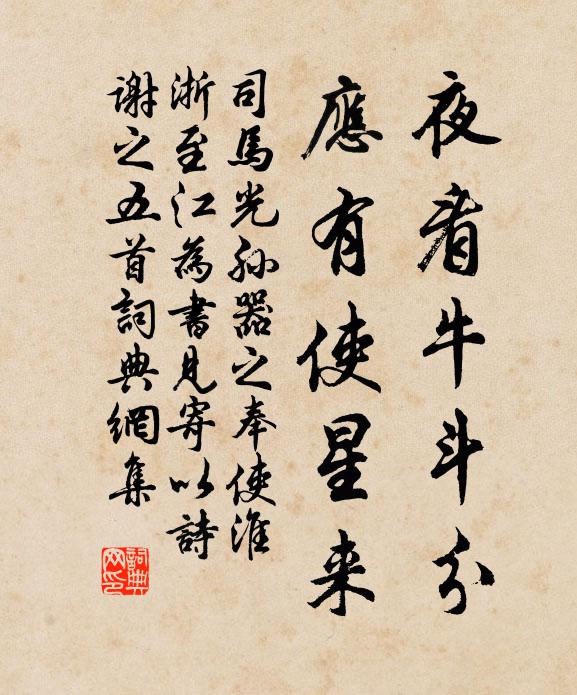 夜看牛斗分
應有使星来
司馬光孫器之奉使淮
浙至江為書見寄以詩
謝之五首詞典網集
詞典
网印